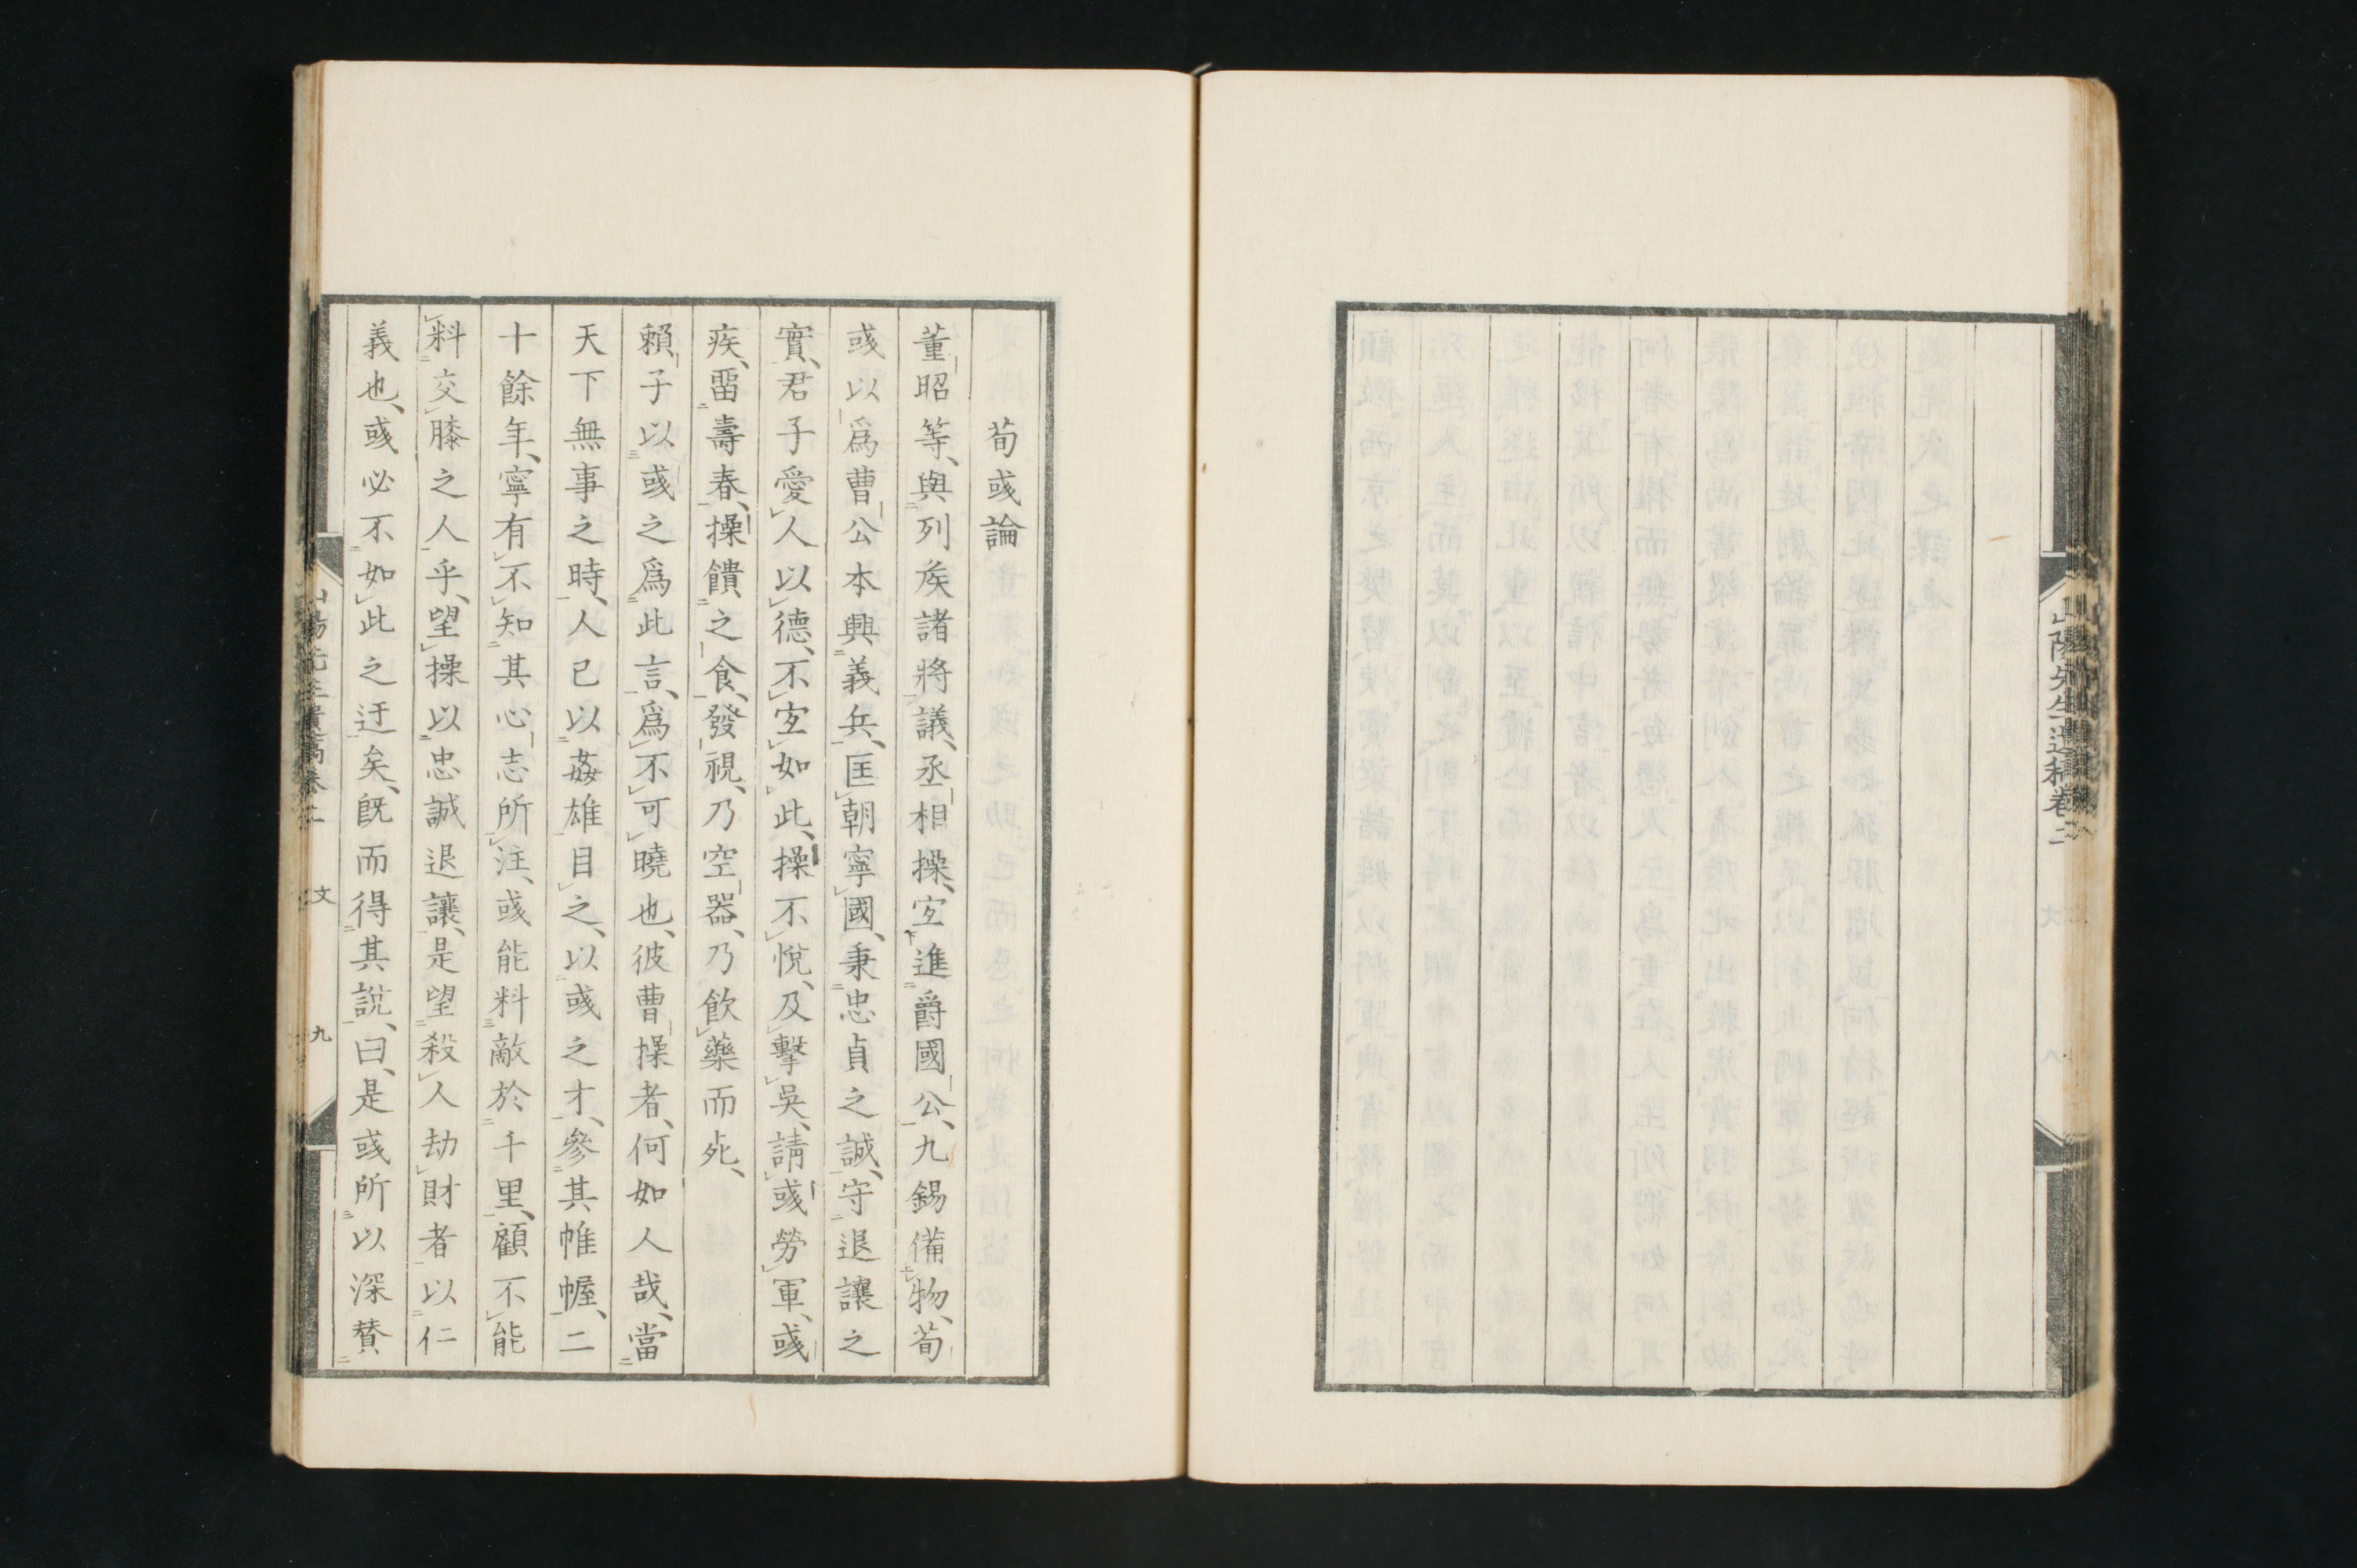 山陽先生遺稿卷二
荀彧論
董昭等、與列矦諸將議、丞相操、宐進爵國公、九錫備物、荀
彧以爲曹公本興義兵、匡朝寧國、秉忠貞之誠、守退讓之
實、君子愛人以德、不宐如此、操不悅、及擊吳、請彧勞軍、彧
疾、畱壽春、操饋之食、發視、乃空器、乃飮藥而死、
賴子以彧之爲此言、爲不可曉也、彼曹操者、何如人哉、當
天下無事之時、人已以姦雄目之、以彧之才、參其帷幄、二
十餘年、寧有不知其心志所注、彧能料敵於千里、顧不能
料交膝之人乎、望操以忠誠退讓、是望殺人劫財者以仁
義也、彧必不如此之迂矣、旣而得其說、曰、是彧所以深贊
山陽先生遺稿卷二 文 九